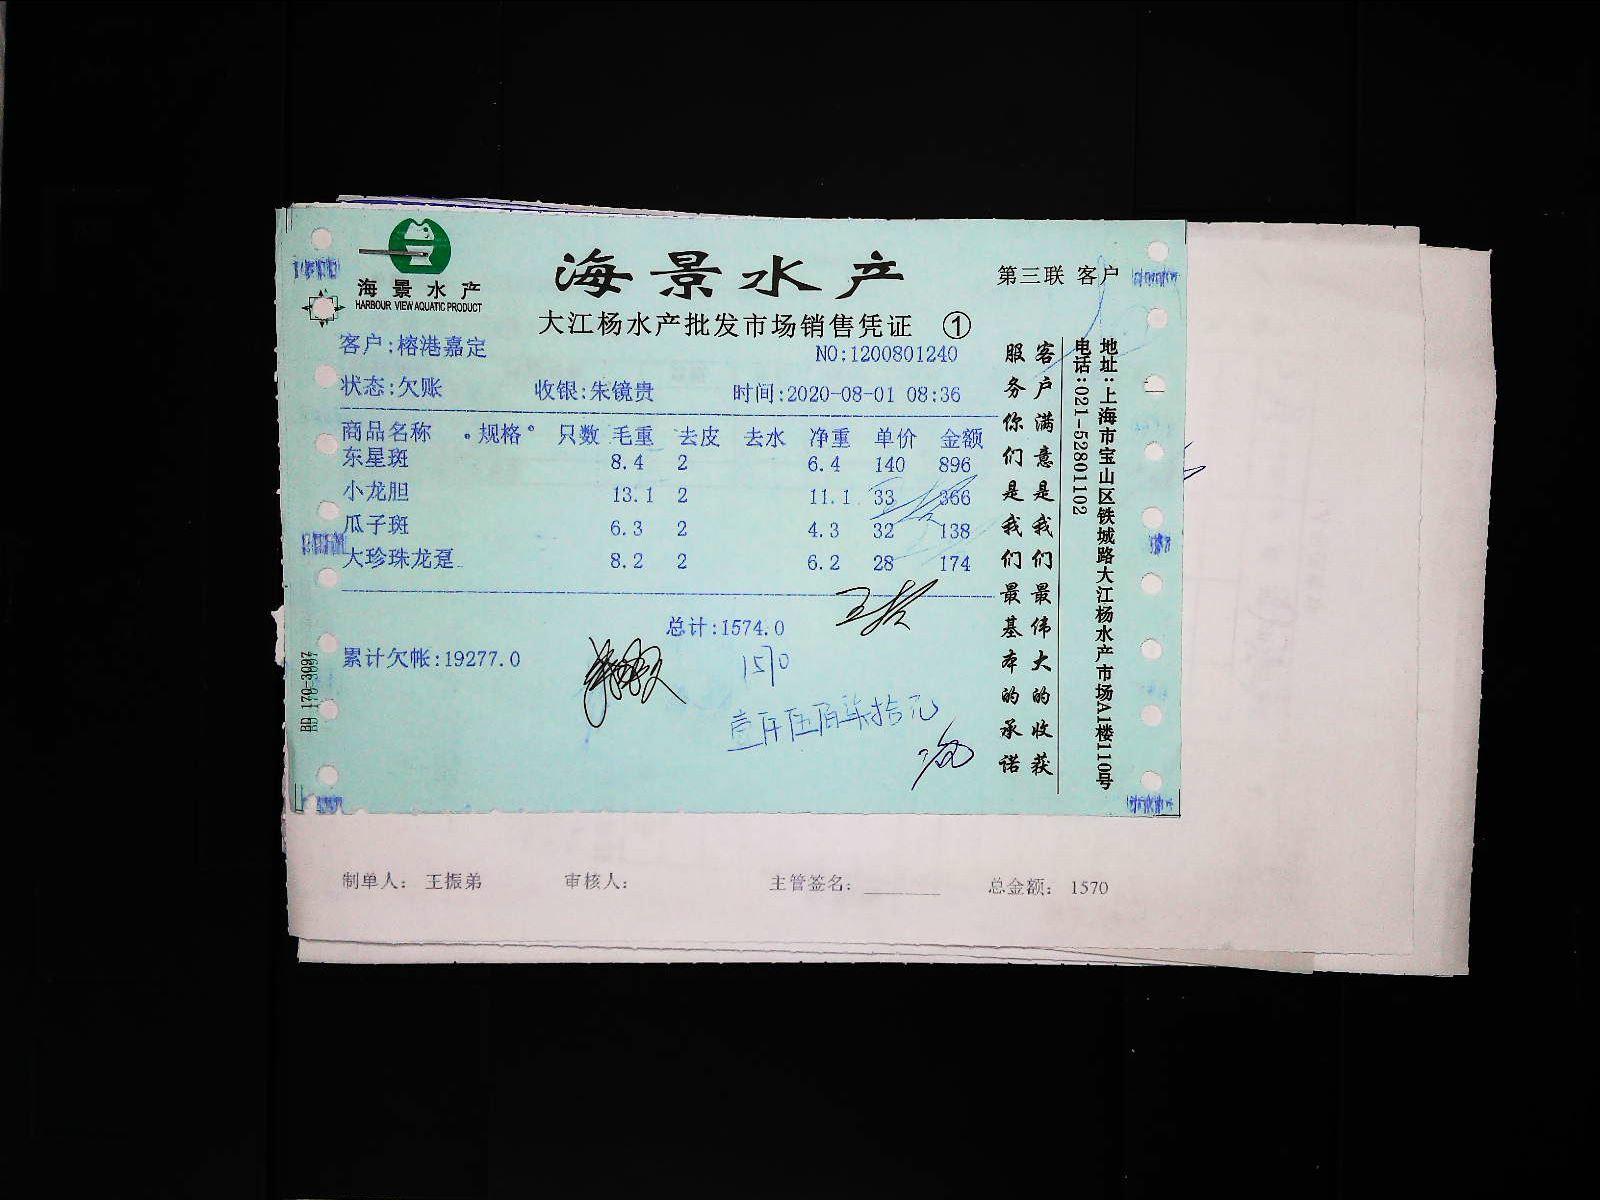 海景水产
HARBOUR VIEW AQUATIC PRODUCT
海景水产
第三联 客户
大江杨水产批发市场销售凭证 ①
客户:榕港嘉定
NO:1200801240
状态:欠账 收银:朱镜贵 时间:2020-08-01 08:36
商品名称 规格 只数 毛重 去皮 去水 净重 单价 金额
东星斑 8.4 2 6.4 140 896
小龙胆 13.1 2 11.1 33 366
瓜子斑 6.3 2 4.3 32 138
大珍珠龙趸 8.2 2 6.2 28 174
总计:1574.0
累计欠帐:19277.0
1570
壹仟伍佰柒拾元
客户满意是我们最伟大的收获
服务你们是我们最基本的承诺
地址:上海市宝山区铁城路大江杨水产市场A1楼110号
电话:021-52801102
BD 170-3097
制单人: 王振弟 审核人: 主管签名: 总金额: 1570